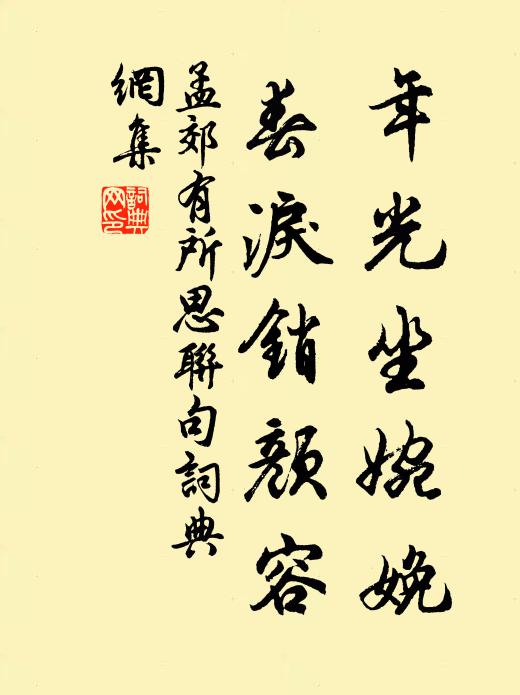 年光坐婉娩
春淚銷顏容
孟郊有所思聯句詞典
網集
詞典網印